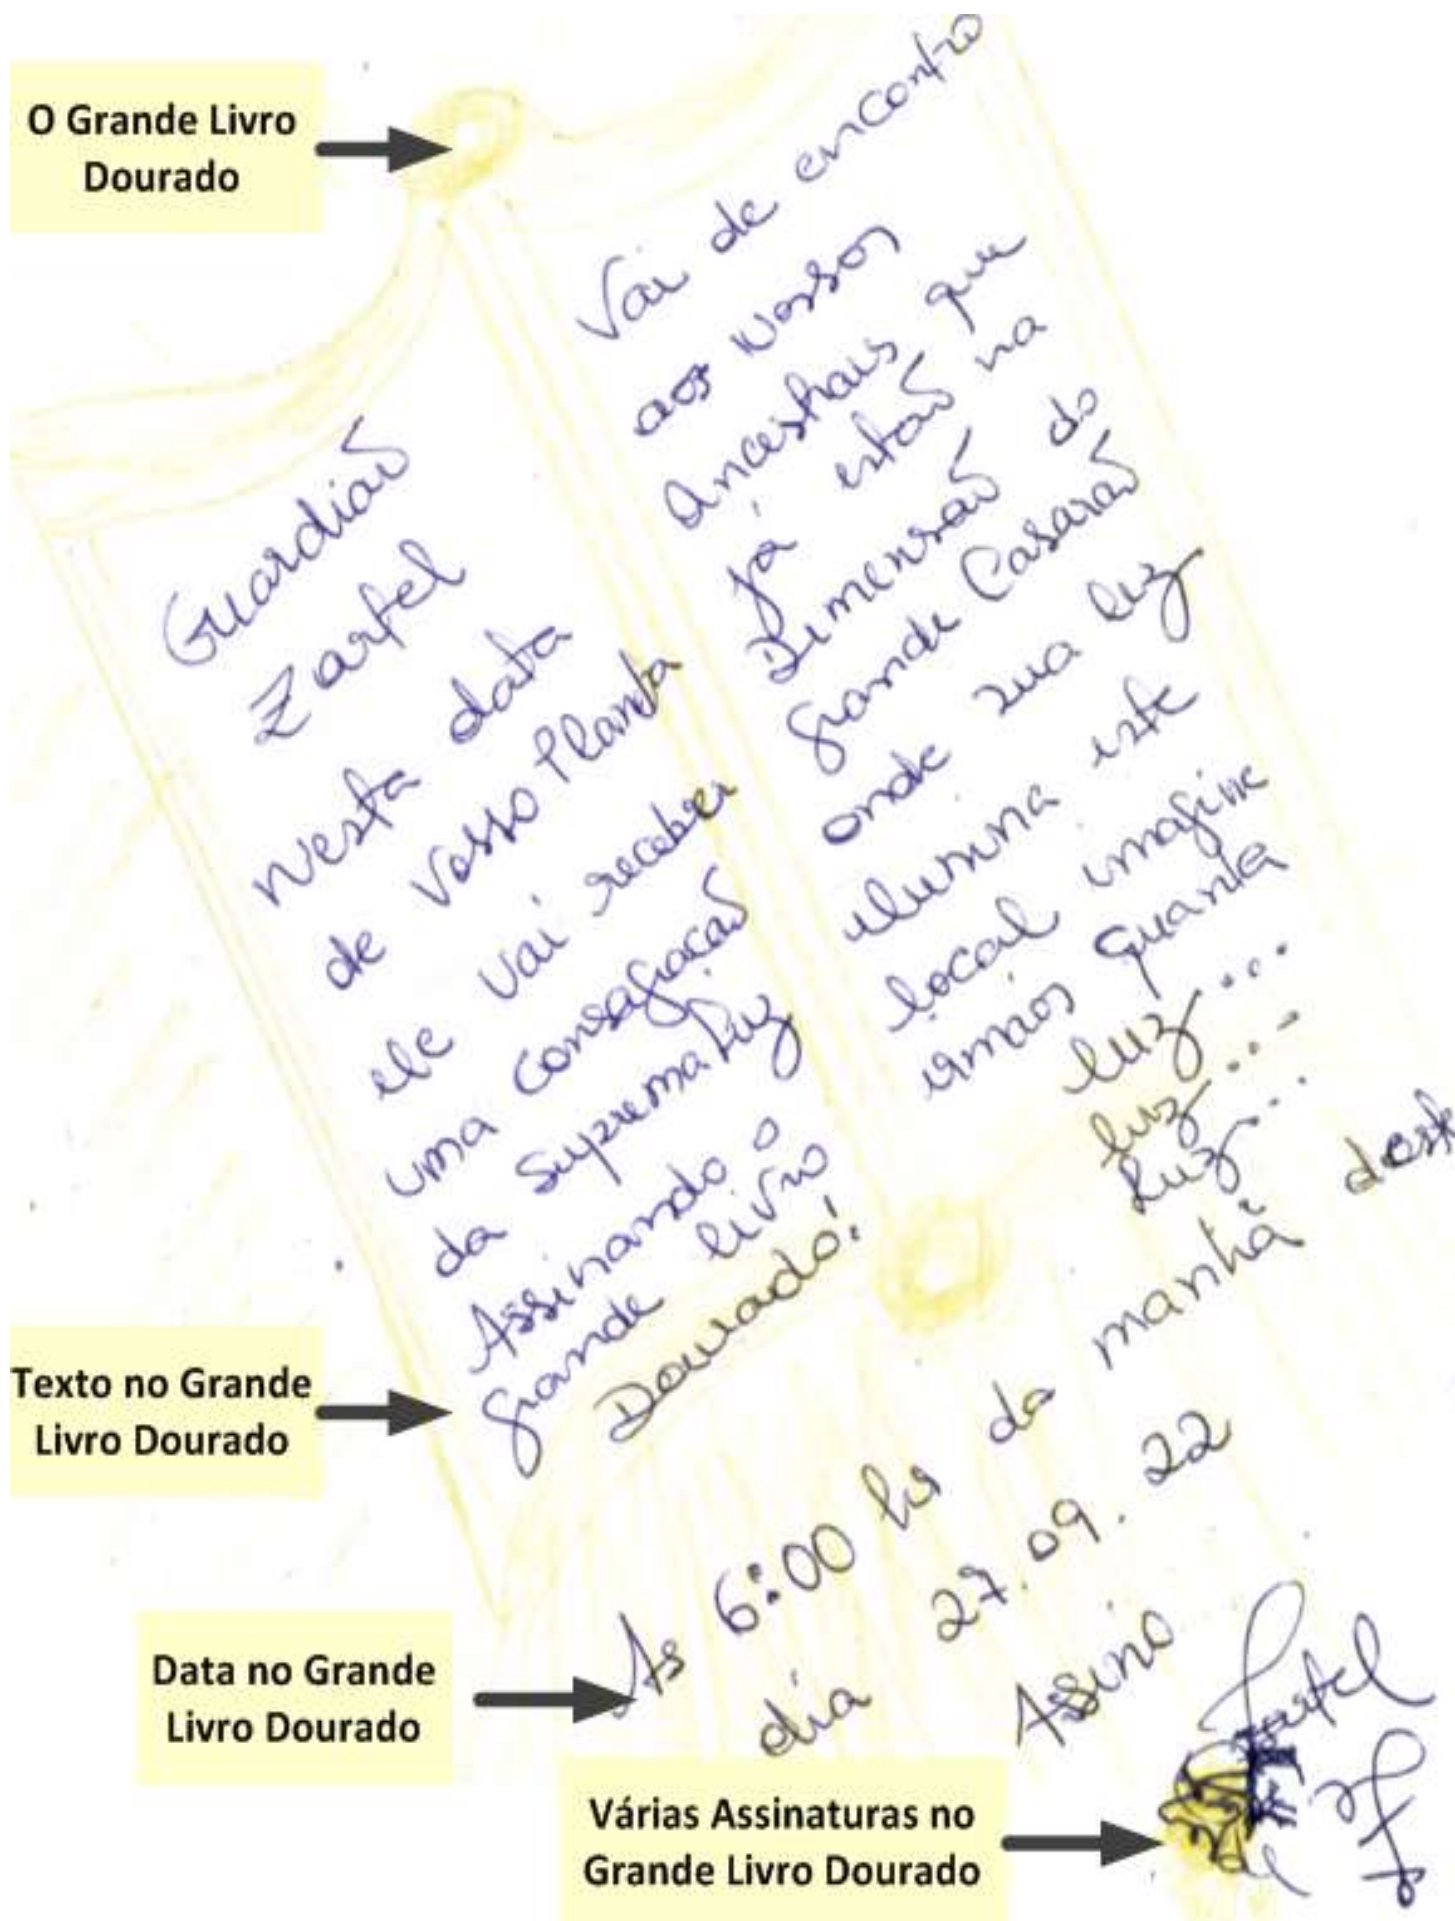 O Grande Livro
Dourado
Guardião
Zarfel
Nesta data
de Vosso Planeta
ele vai receber
uma consagração
da Suprema Luz
Assinando o
grande livro
Dourado!
Vai de encontro
aos Nossos
Ancestrais que
já estão na
Dimensão do
grande Casarão
onde sua luz
ilumina este
local imagine
irmãos quanta
luz...
luz...
Luz...
Texto no Grande
Livro Dourado
As 6:00 hs da manhã deste
dia 27.09.22
Assino
Zarfel
Data no Grande
Livro Dourado
Várias Assinaturas no
Grande Livro Dourado